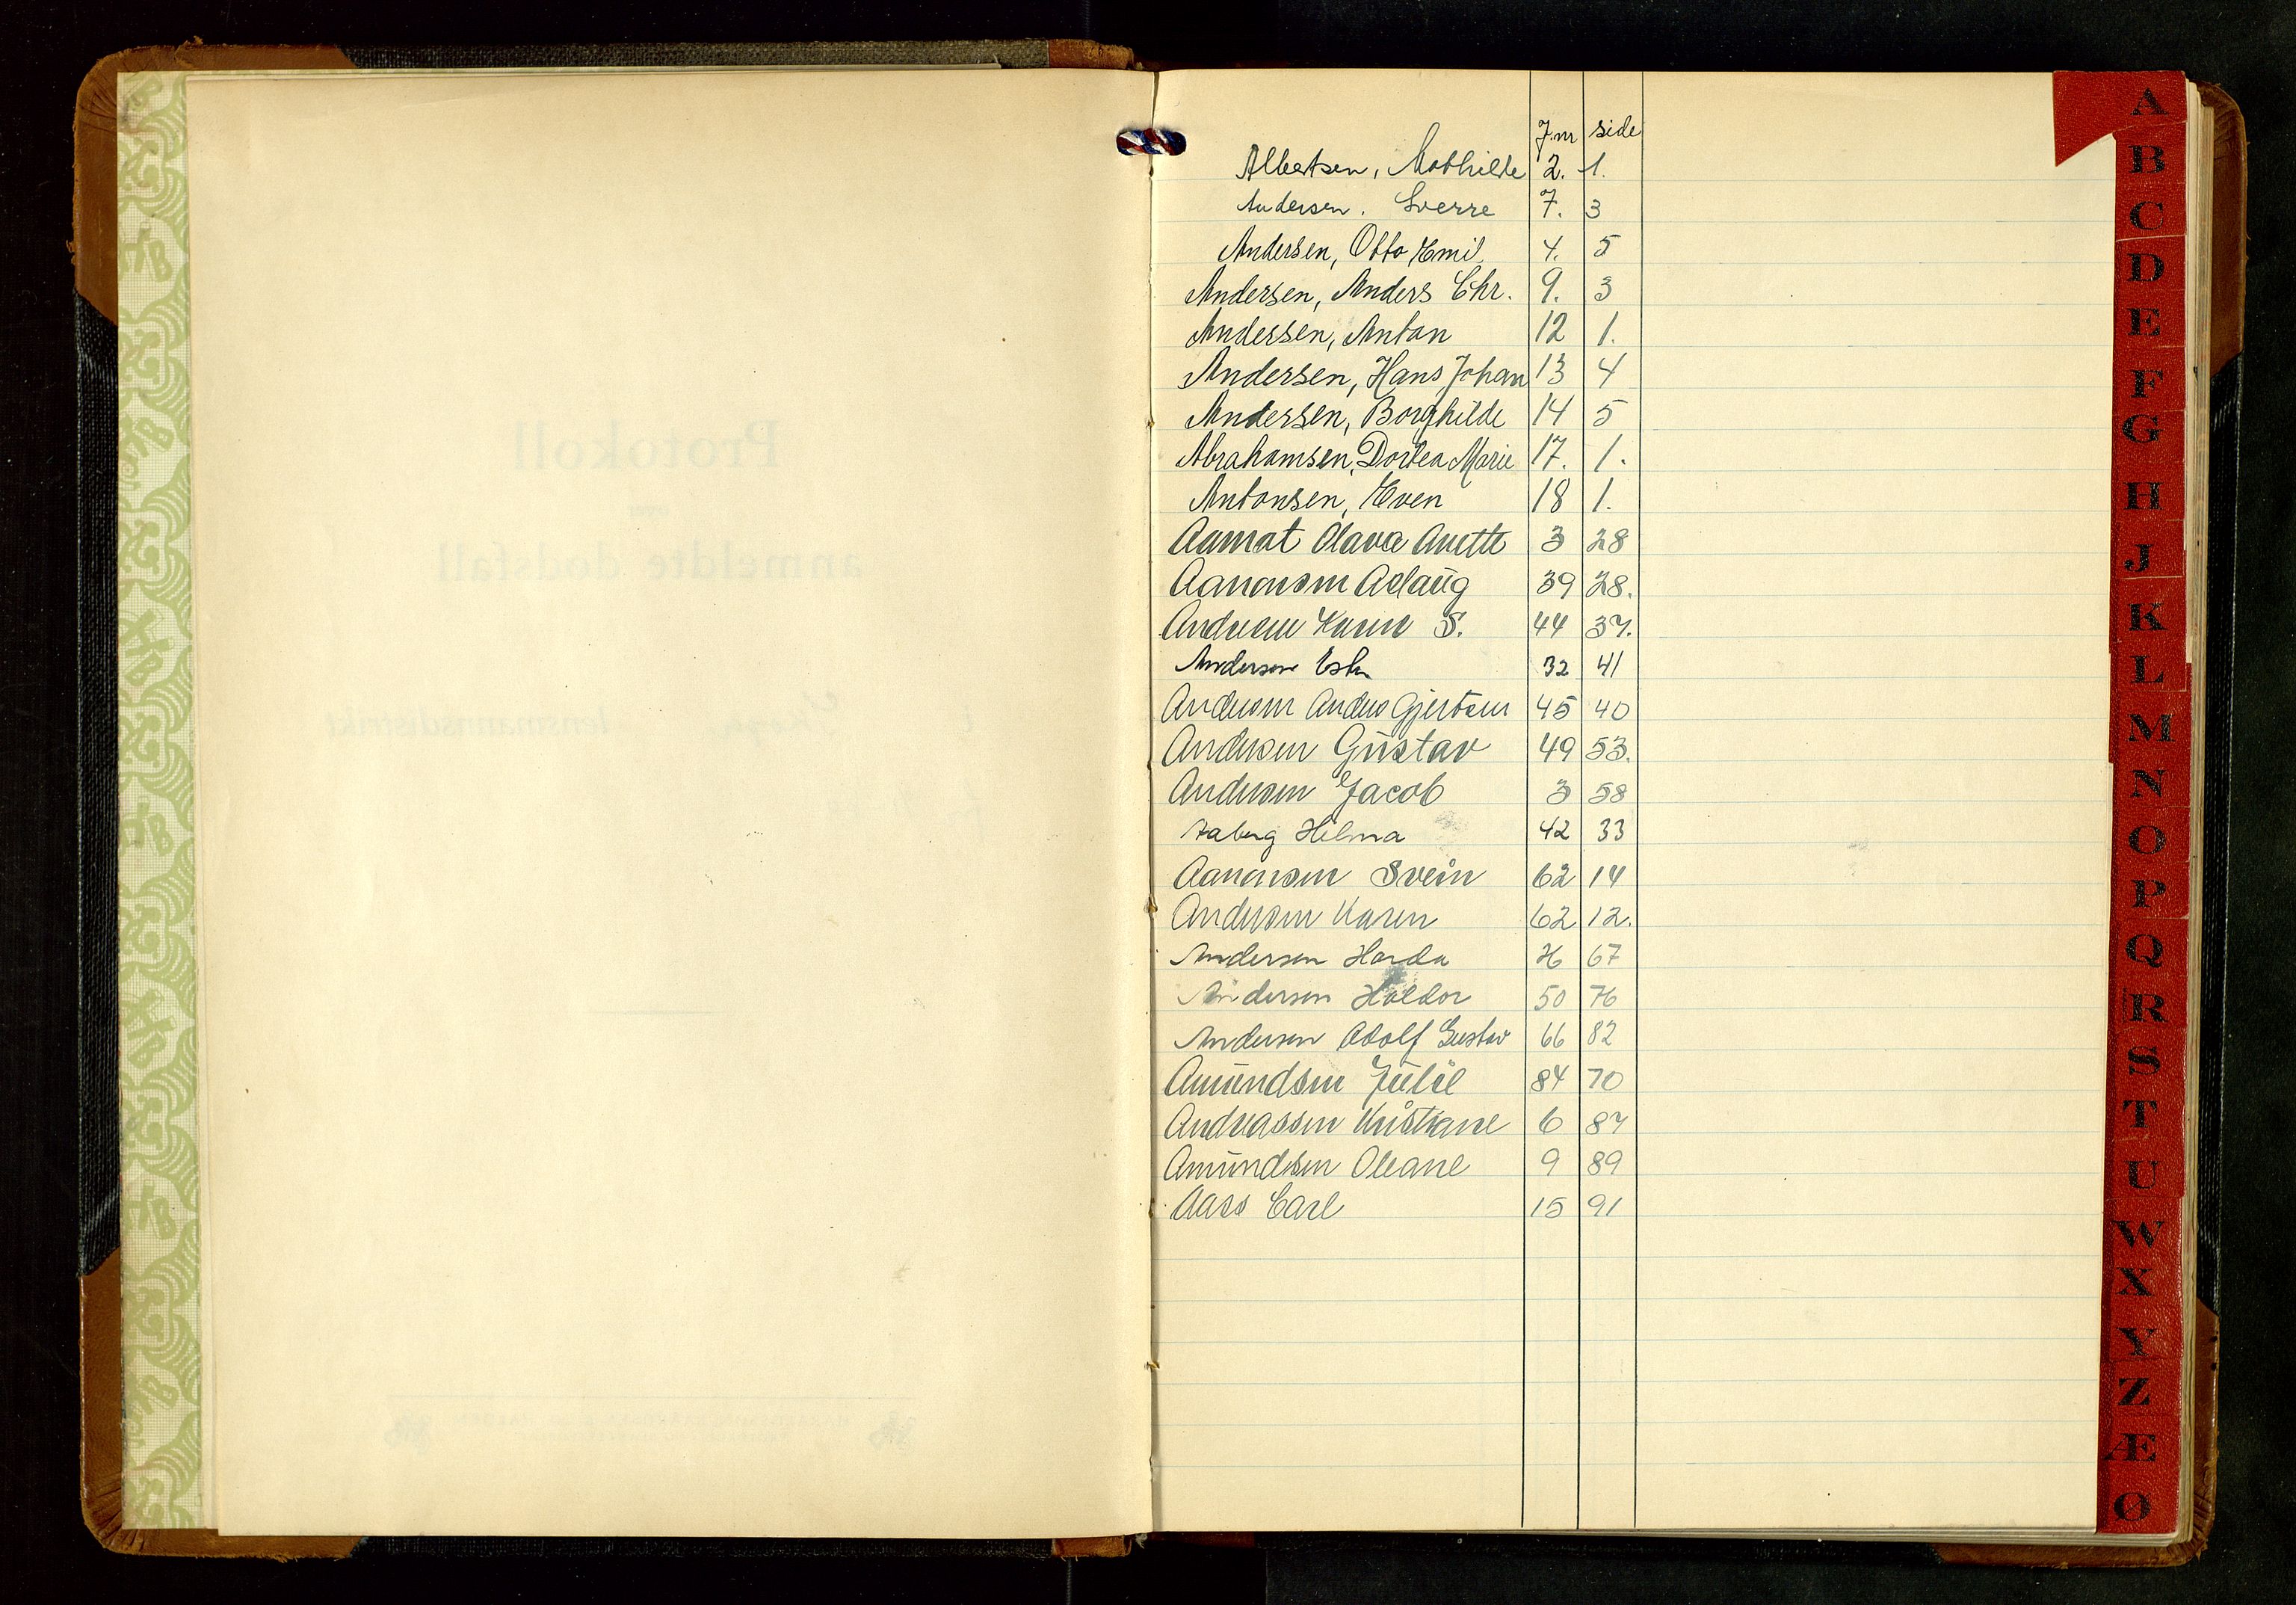 J.nr side
Albertsen, Mathilde 2. 1.
Andersen. Sverre 7. 3
Andersen, Otto Emil 4. 5
Andersen, Anders Chr. 9. 3
Andersen, Anton 12 1.
Andersen, Hans Johan 13 4
Andersen, Borghilde 14 5
Abrahamsen, Dortea Marie 17. 1.
Antonsen, Even 18 1.
Aamot Olava Anette 3 28
Aanonsen Aslaug 39 28.
Andersen Karin S. 44 37.
Andersen 32 41
Andersen Anders Gjertsen 45 40
Andersen Gustav 49 53.
Andersen Jacob 3 58
Aaberg Hilma 42 33
Aanonsen Svein 62 14
Andersen Karen 62 12.
Andersen Harda 67
Andersen Haldor 50 76
Andersen Adolf Gustav 66 82
Amundsen Julie 84 70
Andreassen Kristiane 6 87
Amundsen Oleane 9 89
Aass Carl 15 91
A
B
C
D
E
F
G
H
J
K
L
M
N
O
P
Q
R
S
T
U
W
X
Y
Z
Æ
Ø
Protokoll
over
anmeldte dødsfall
i lensmannsdistrikt